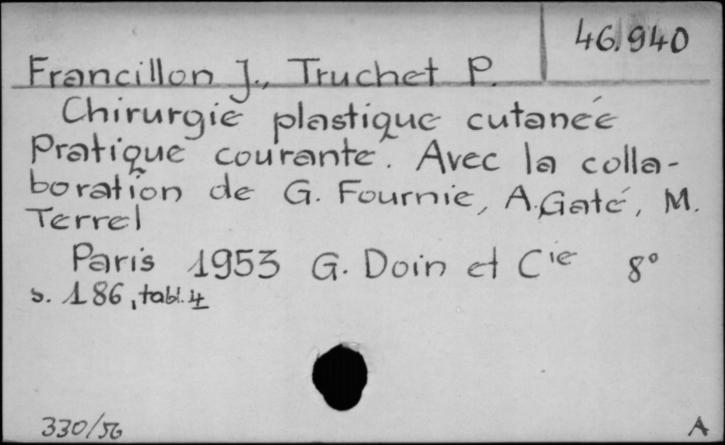 46.940
Francillon J., Truchet P.
Chirurgie plastique cutanée
Pratique courante. Avec la colla-
boration de G. Fournie, A. Gaté, M.
Terrel
Paris 1953 G. Doin et Cie 8°
s. 186, tabl. 4
330/56 A